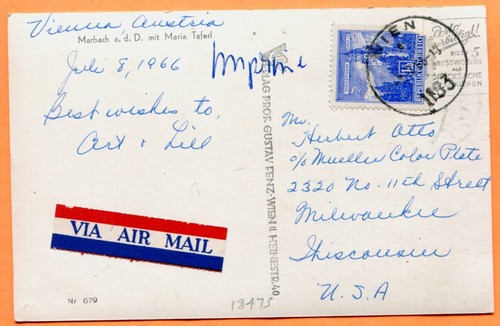 Vienna Austria
Marbach a. d. D. mit Maria Taferl
July 8, 1966
Best wishes to
Art + Lill
VIA AIR MAIL
Nr 679
18475
VERLAG PROF. GUSTAV FENZ-WIEN II, HEINESTR. 40
WIEN
1183
Mr.
Herbert Otto
c/o Mueller Color Plate
2320 No. 11th Street
Milwaukee
Wisconsin
U.S.A